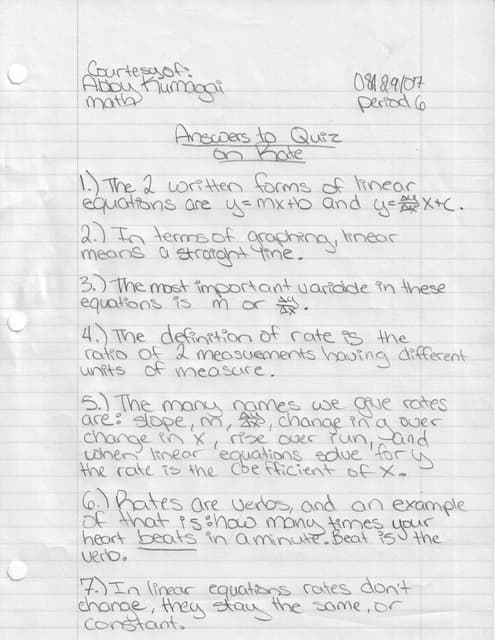 Courtesy of:
Abby Kumagai
math
08/29/07
period 6
Answers to Quiz
on Rate
1.) The 2 written forms of linear
equations are y=mx+b and y=Δy/Δx x+c.
2.) In terms of graphing, linear
means a straight line.
3.) The most important variable in these
equations is m or Δy/Δx.
4.) The definition of rate is the
ratio of 2 measuements having different
units of measure.
5.) The many names we give rates
are: slope, m, Δy/Δx, change in y over
change in x, rise over run, and
when linear equations solve for y
the rate is the coefficient of x.
6.) Rates are verbs, and an example
of that is: how many times your
heart beats in a minute. Beat is the
verb.
7.) In linear equations rates don't
change, they stay the same, or
constant.